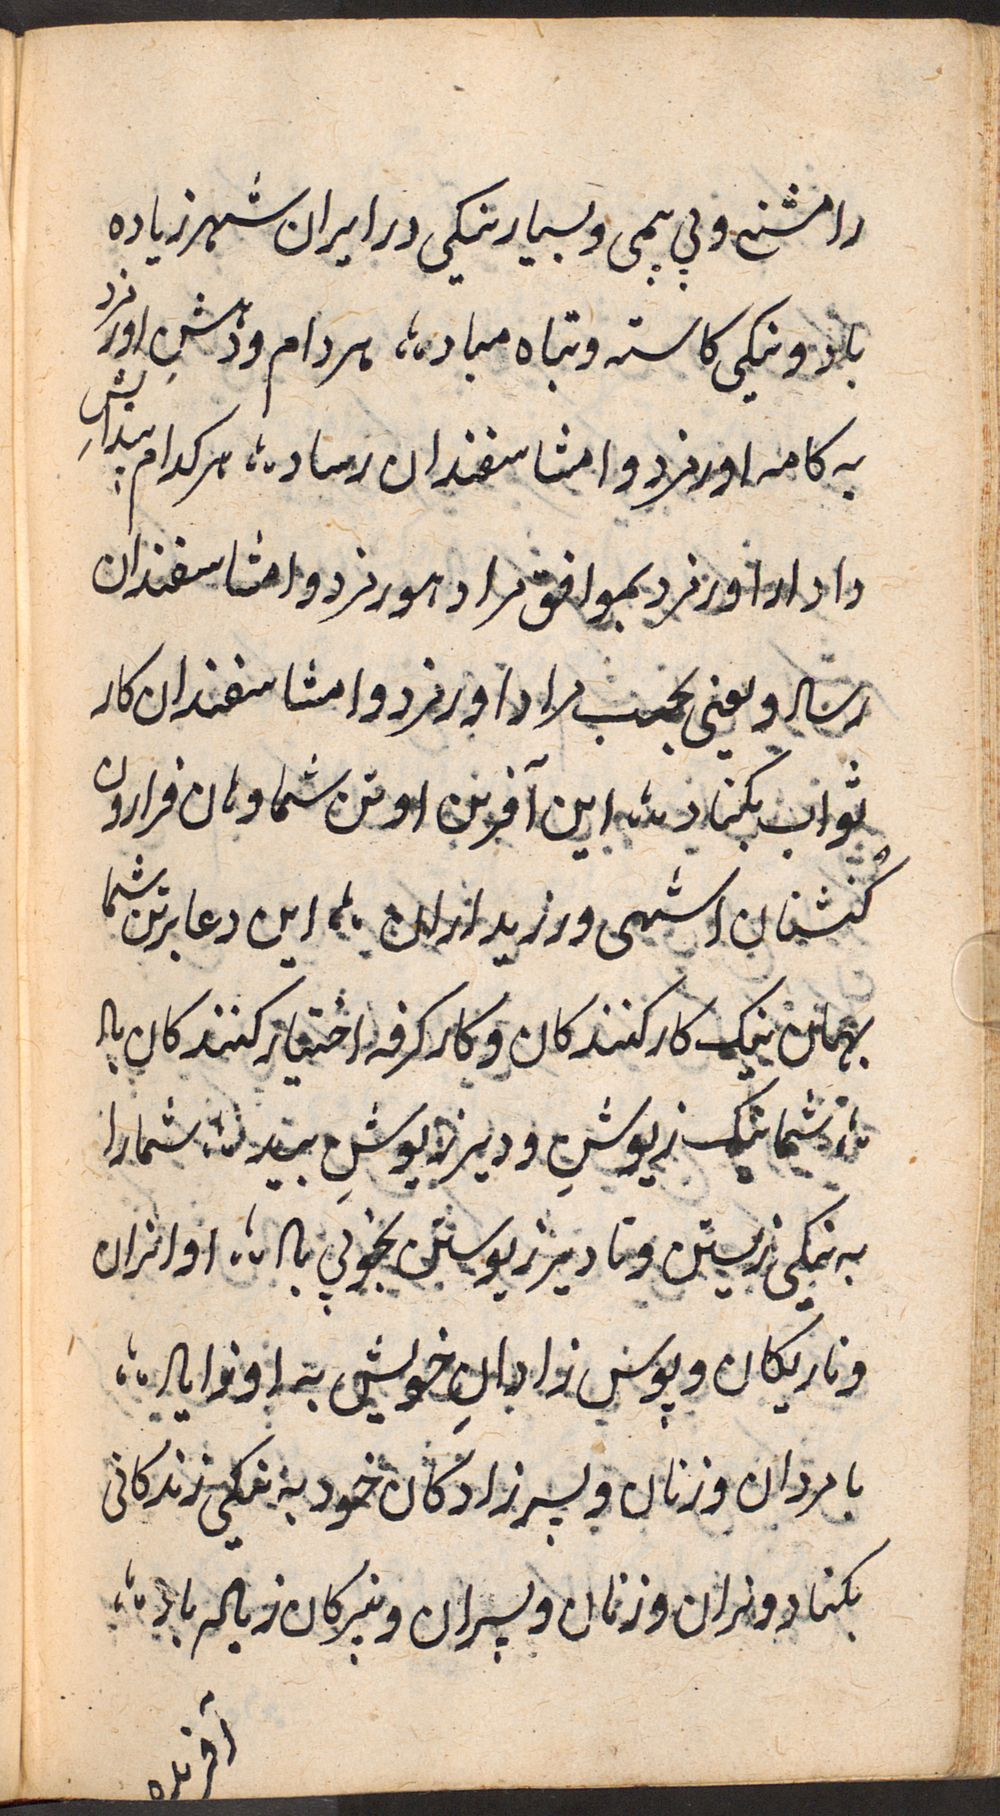 رامشنی و بی بیمی و بسیار نیکی در ایران شهر زیاده
باد و نیکی کاسته و تباه مباد؛، هر دام و دهشنِ اورنزد
به کامه اورنزد و امشاسفندان رساد؛، هر کدام پیدایشِ
دادار اورنزد بموافق مراد هورنزد و امشاسفندان
رساد و یعنی بحسب مراد اورنزد و امشاسفندان کار
ثواب بکناد؛، این آفرین او تن شما وهان فرارون
کُنشنان اشهی ورزیداران؛، این دعا بر تن شما
بهمان نیک کار کنندکان و کار کرفه اختیار کنندکان باد
؛، شما نیک زیوشنِ و دیر زیوشنِ بید؛، شما را
به نیکی زیستن و تا دیر زیوستن بخوبی باد؛، او انران
و ناریکان و پوس زادانِ خویش به او نواید؛،
با مردان و زنان و پسر زادکان خود به نیکی زندکانی
بکناد و نران و زنان و پسران و نبیرکان زیاده باد؛،
آفریده